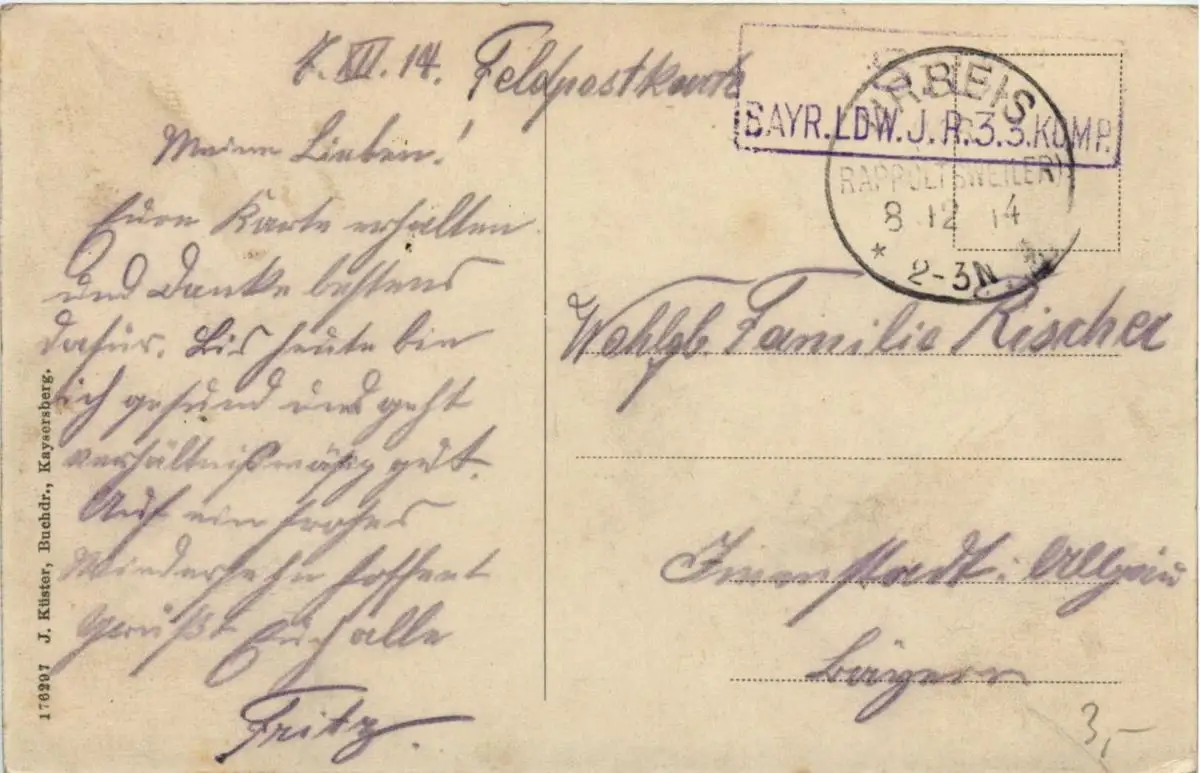 7. XII. 14. Feldpostkarte
Meine Lieben!
Eure Karte erhalten
und danke bestens
dafür. Bis heute bin
ich gesund und geht
verhältnißmäßig gut.
Auf ein frohes
Wiedersehn hoffent
Grüßt Euch alle
Fritz.
176297 J. Küster, Buchdr., Kaysersberg.
BAYR.LDW.J.R.3 3.KOMP.
URBEIS
(RAPPOLTSWEILER)
8 12 14
* 2-3N *
Wohlgb. Familie Rischer
Imenstadt i. Allgäu
Bayern
3,-